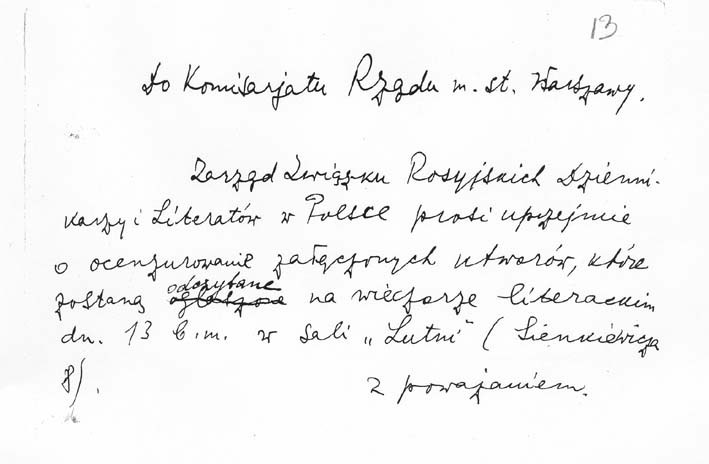 13
Do Komisarjatu Rządu m. st. Warszawy.
Zarząd Związku Rosyjskich Dzienni-
karzy i Literatów w Polsce prosi uprzejmie
o ocenzurowanie załączonych utworów, które
zostaną odczytane na wieczorze literackim
dn. 13 b.m. w sali „Lutni" (Sienkiewicza
8).
Z poważaniem.